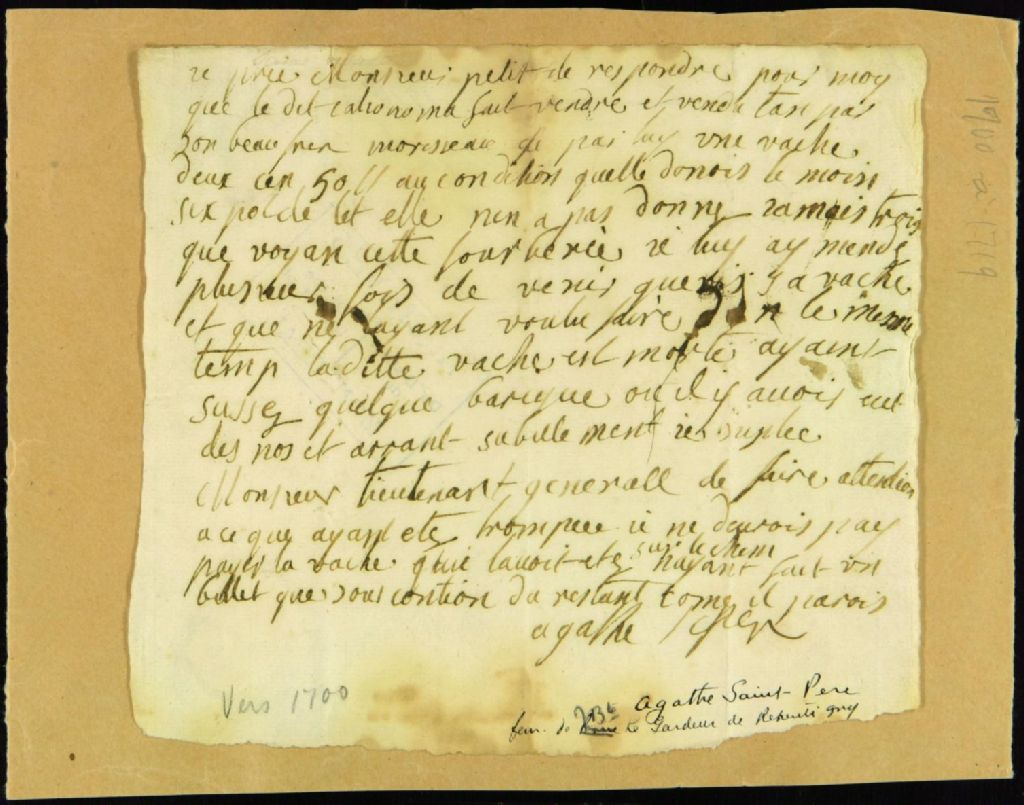 ie prie Monsieur petit de respondre pour moy
que le dit m a fait vendre et vendu tan par
son beau frer morisseau que par luy vne vache
deux cen 50 ll au condision quelle donois le moin
six po de let elle nen a pas donne iamais trois
que voyan cette fourberie ie luy ay mendé
plusieur foys de venir querir sa vache
et que ne layant voulu faire en le meme
temp laditte vache est morte ayant
sussez quelque barique ou il y auoit eut
des nos et arrant subitement ie suplie
Monsieur lieutenant generall de faire attention
a ce que ayant ete trompee ie ne devrois pay
payer la vache quie lavoit ete sur le chem nayant fait vn
billet que sous contion du restant come il parois
agathe St Per
Vers 1700
Agathe Saint-Pere
fem. de JBte Le Gardeur de Repentigny
1700 à 1719